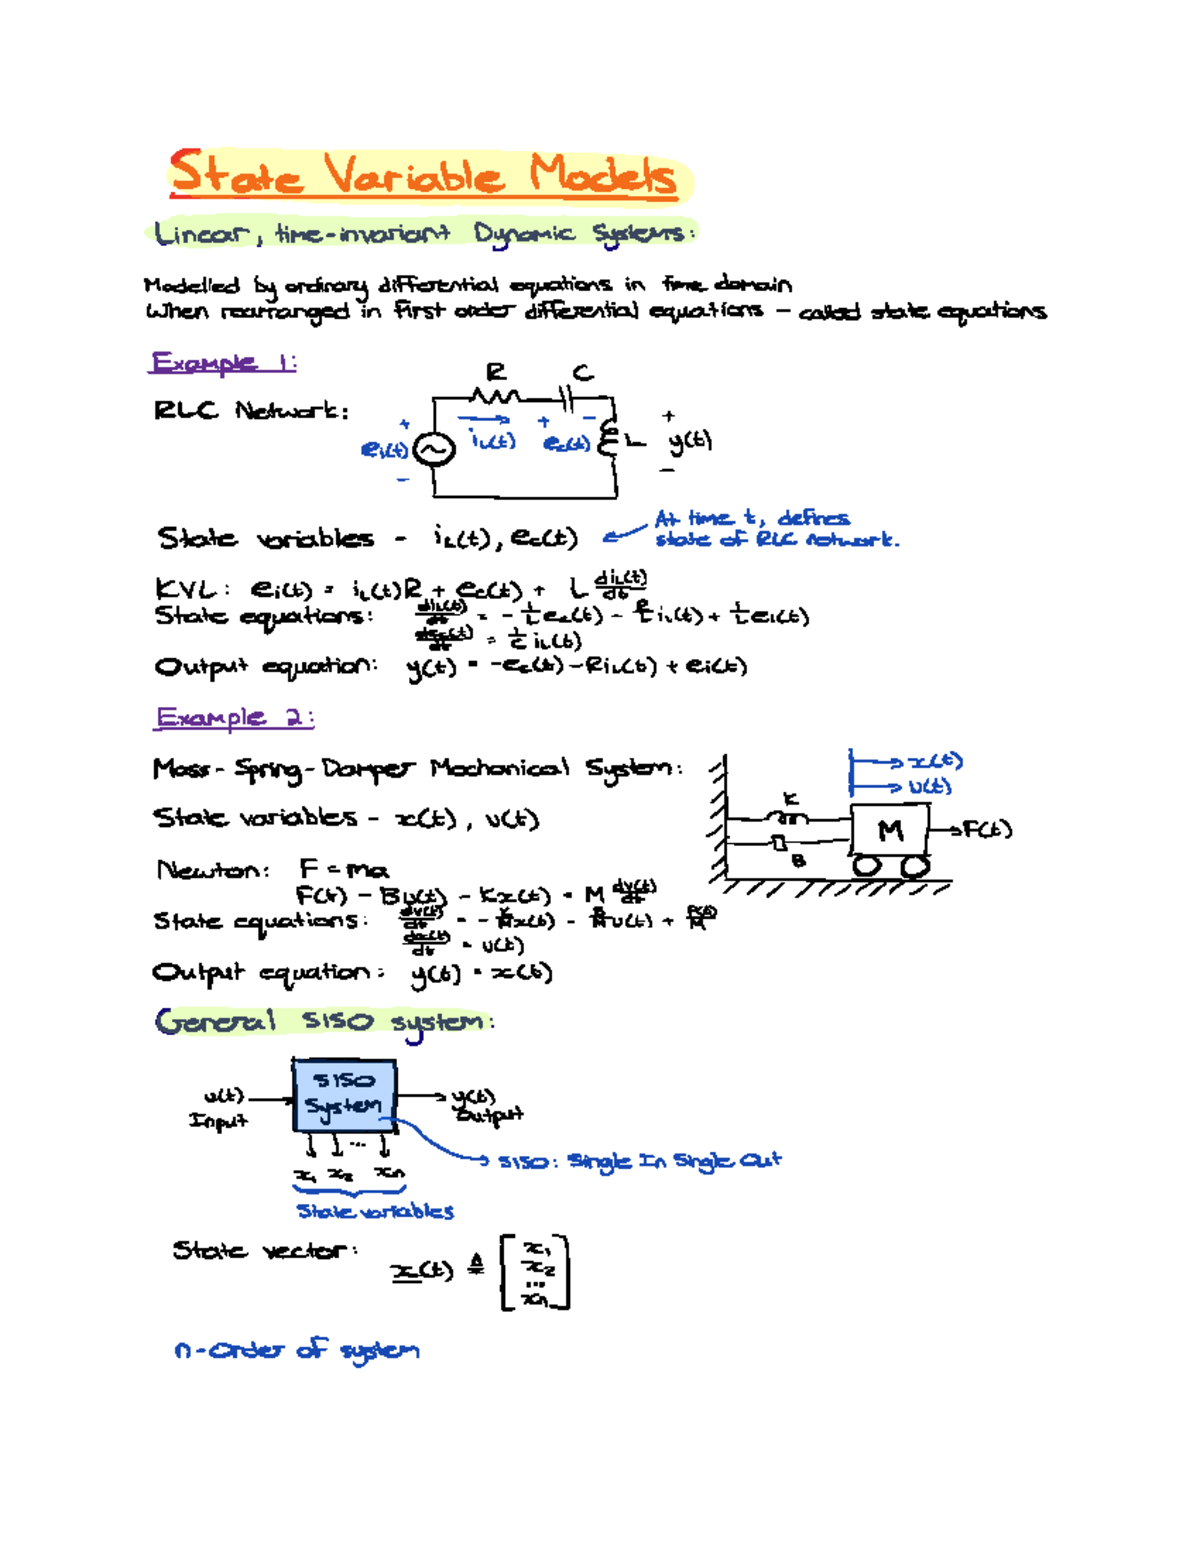 State Variable Models
Linear, time-invariant Dynamic Systems:
Modelled by ordinary differential equations in time domain
When rearranged in first order differential equations - called state equations
Example 1:
RLC Network:
R C
+ + - +
ei(t) iL(t) ec(t) L y(t)
- -
State variables - iL(t), ec(t)
At time t, defines
state of RLC network.
KVL: ei(t) = iL(t)R + ec(t) + L diL(t)/dt
State equations: diL(t)/dt = - 1/L ec(t) - R/L iL(t) + 1/L ei(t)
dec(t)/dt = 1/C iL(t)
Output equation: y(t) = -ec(t) - RiL(t) + ei(t)
Example 2:
Mass-Spring-Damper Mechanical System:
x(t)
v(t)
K
M F(t)
B
State variables - x(t), v(t)
Newton: F = ma
F(t) - Bv(t) - Kx(t) = M dv(t)/dt
State equations: dv(t)/dt = - K/M x(t) - B/M v(t) + F(t)/M
dx(t)/dt = v(t)
Output equation: y(t) = x(t)
General SISO system:
u(t) SISO y(t)
Input System Output
...
x1 x2 xn
SISO: Single In Single Out
State variables
State vector: x(t) ≜ [x1
x2
...
xn]
n-order of system